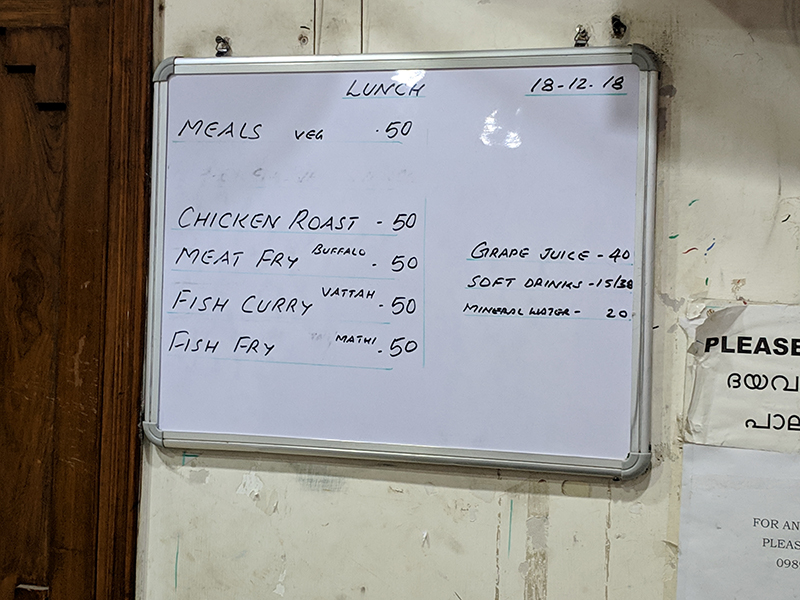 LUNCH 18-12.18
MEALS VEG .50
CHICKEN ROAST - 50
MEAT FRY BUFFALO . 50
FISH CURRY VATTAH . 50
FISH FRY MATHI . 50
GRAPE JUICE - 40
SOFT DRINKS - 15/38
MINERAL WATER - 20
PLEASE
ദയവ
പാല
FOR AN
PLEAS
098